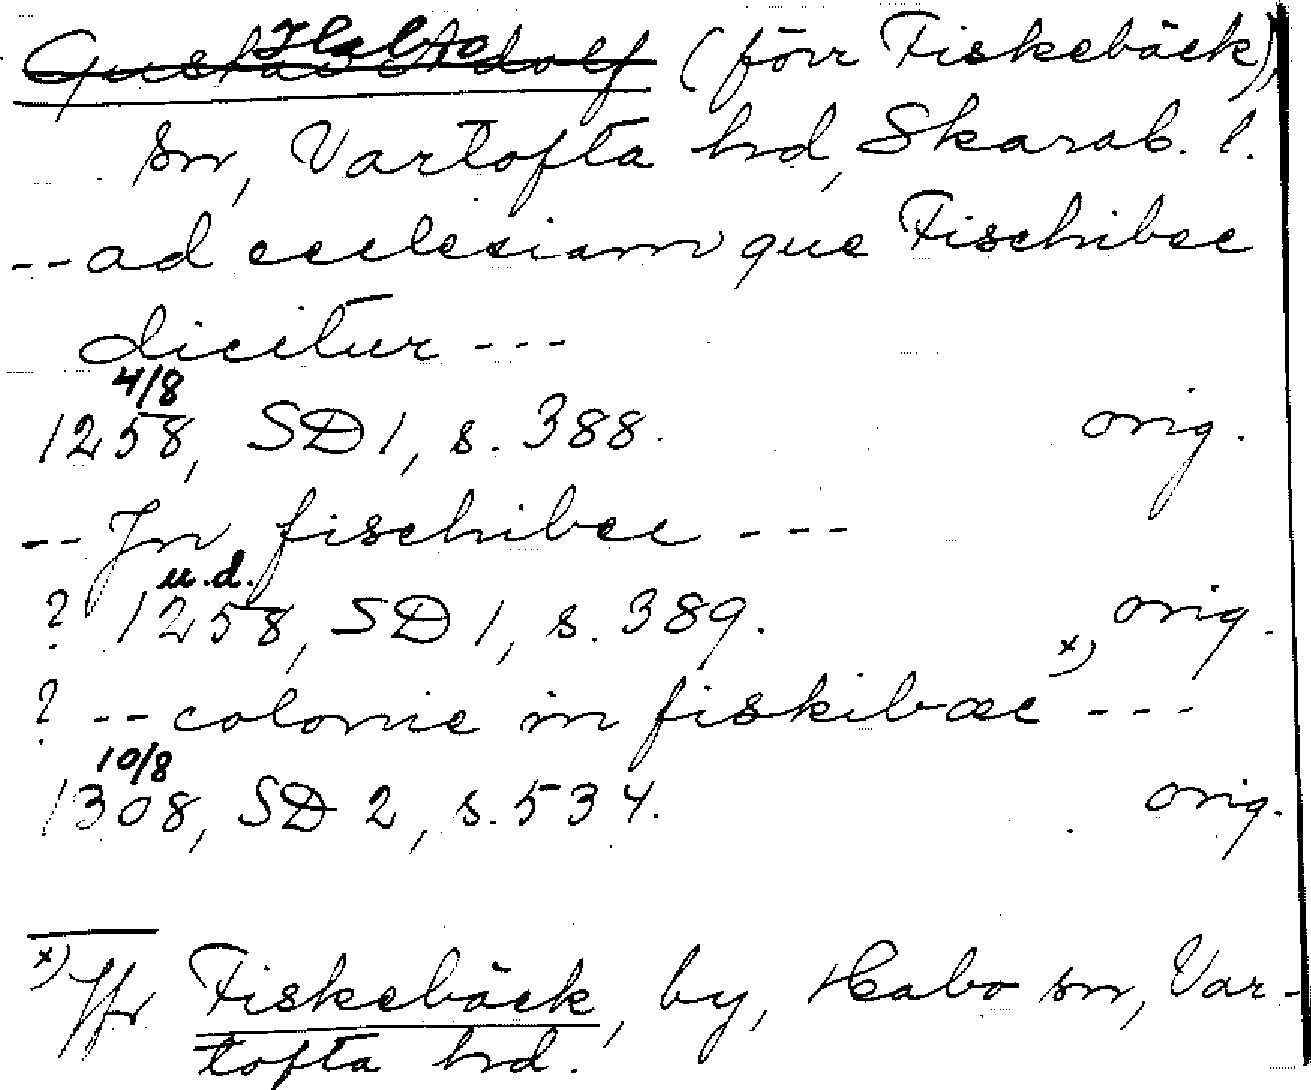 Habo
Gustav Adolf (förr Fiskebäck),
sn, Vartofta hd, Skarab. l.
-- ad ecclesiam que Fischibec
dicitur ---
4/8
1258, SD 1, s. 388. orig.
-- Jn fischibec ---
u.d.
? 1258, SD 1, s. 389. orig.
? -- colonie in fiskibæc x) ---
10/8
1308, SD 2, s. 534. orig.
x) Jfr Fiskebäck, by, Habo sn, Var-
tofta hd.